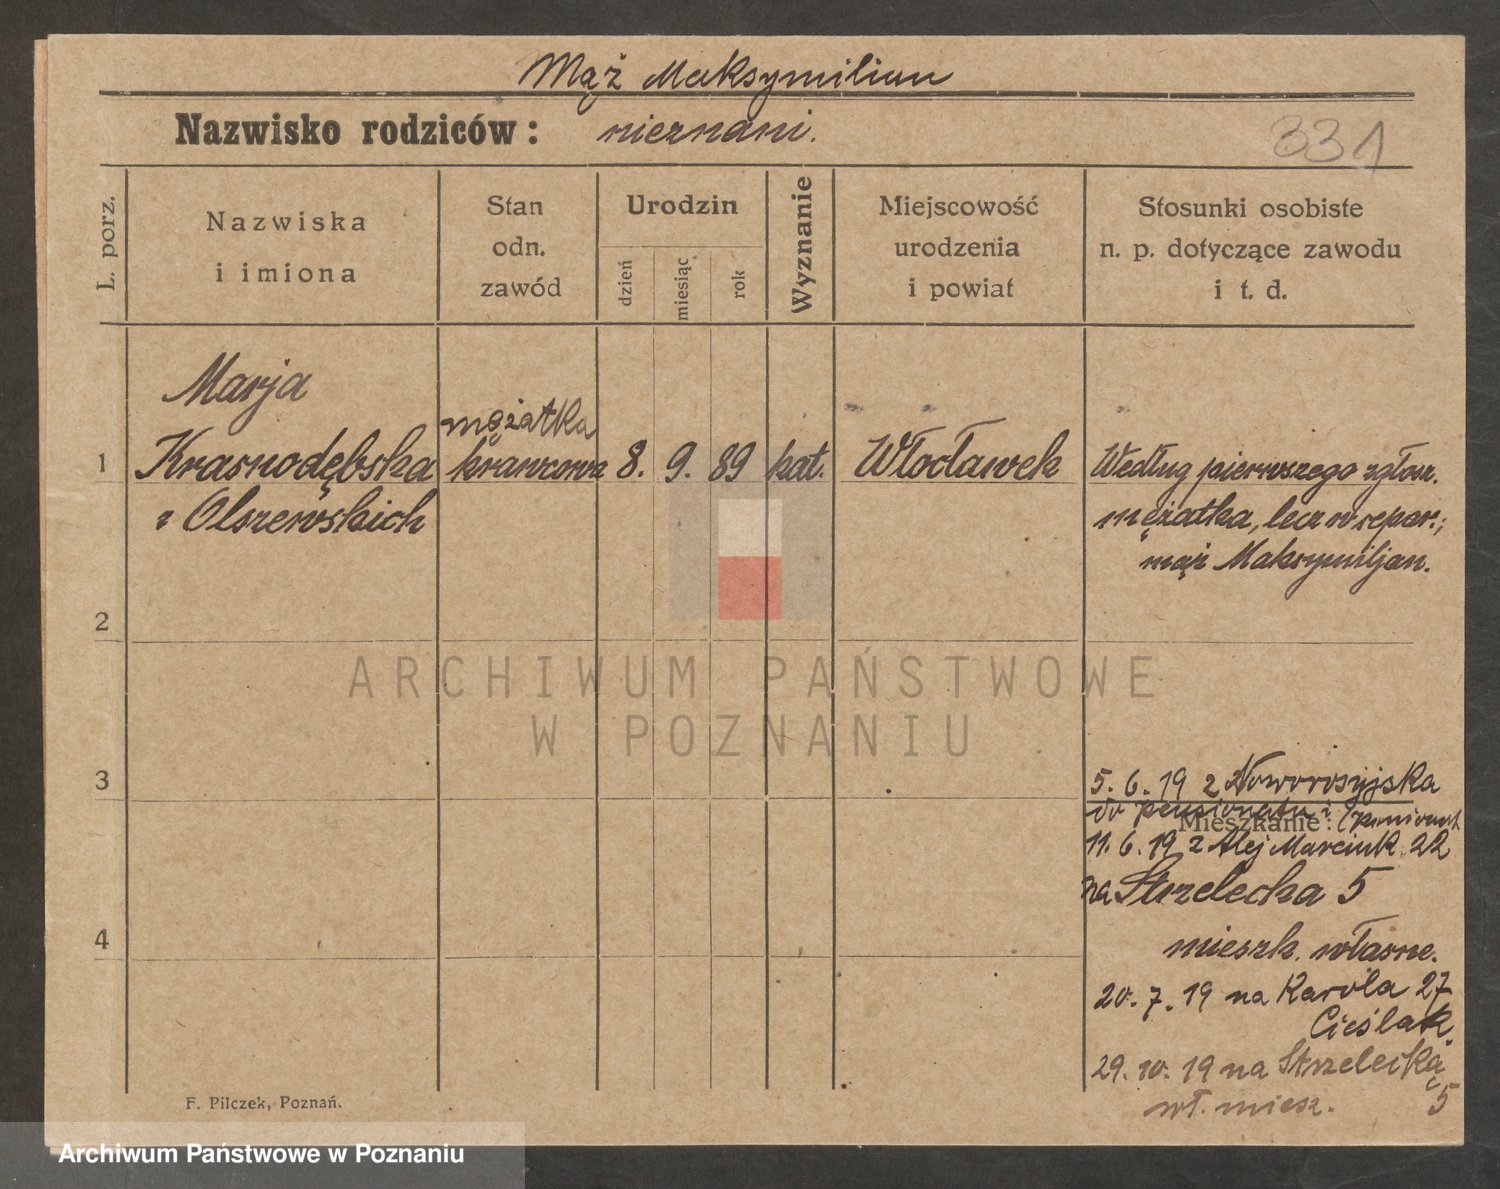 Mąż Maksymilian
Nazwisko rodziców: nieznani.
331
L. porz.
Nazwiska
i imiona
Stan
odn.
zawód
Urodzin
dzień
miesiąc
rok
Wyznanie
Miejscowość
urodzenia
i powiat
Stosunki osobiste
n. p. dotyczące zawodu
i t. d.
1
Marja
Krasnodębska
z Olszewskich
mężatka
krawcowa
8. 9. 89
kat.
Włocławek
Według pierwszego zgłosz.
mężatka, lecz w separ.;
mąż Maksymiljan.
2
3
4
5. 6. 19 z Noworosyjska
do pensjonatu
Mieszkanie:
11. 6. 19 z Alej Marcink. 22
na Strzelecka 5
mieszk. własne.
20. 7. 19 na Karola 27
Cieślak
29. 10. 19 na Strzelecką
wł. miesz. 5
F. Pilczek, Poznań.
ARCHIWUM PAŃSTWOWE
W POZNANIU
Archiwum Państwowe w Poznaniu